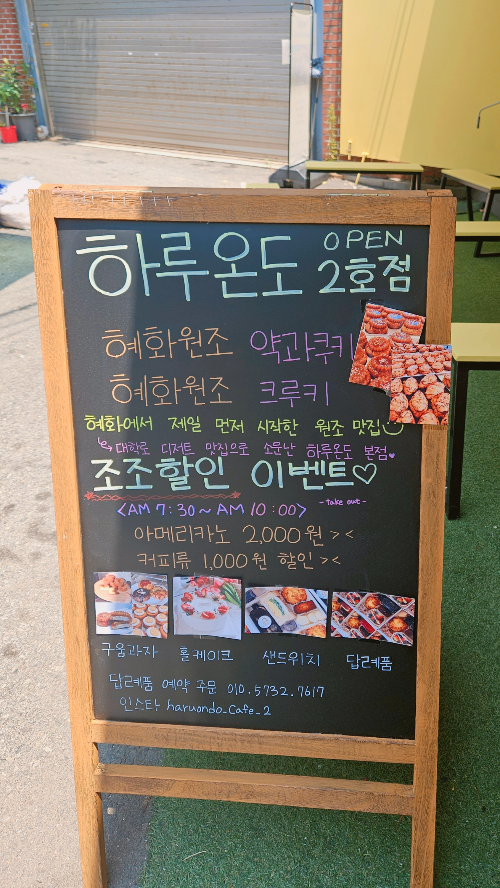 하루온도 OPEN 2호점
혜화원조 약과쿠키
혜화원조 크루키
혜화에서 제일 먼저 시작한 원조 맛집
↳ 대학로 디저트 맛집으로 소문난 하루온도 본점♥
조조할인 이벤트♡
<AM 7:30~AM 10:00> -take out-
아메리카노 2,000원 ><
커피류 1,000원 할인 ><
구움과자 홀케이크 샌드위치 답례품
답례품 예약 주문 010.5732.7617
인스타 haruondo_cafe_2